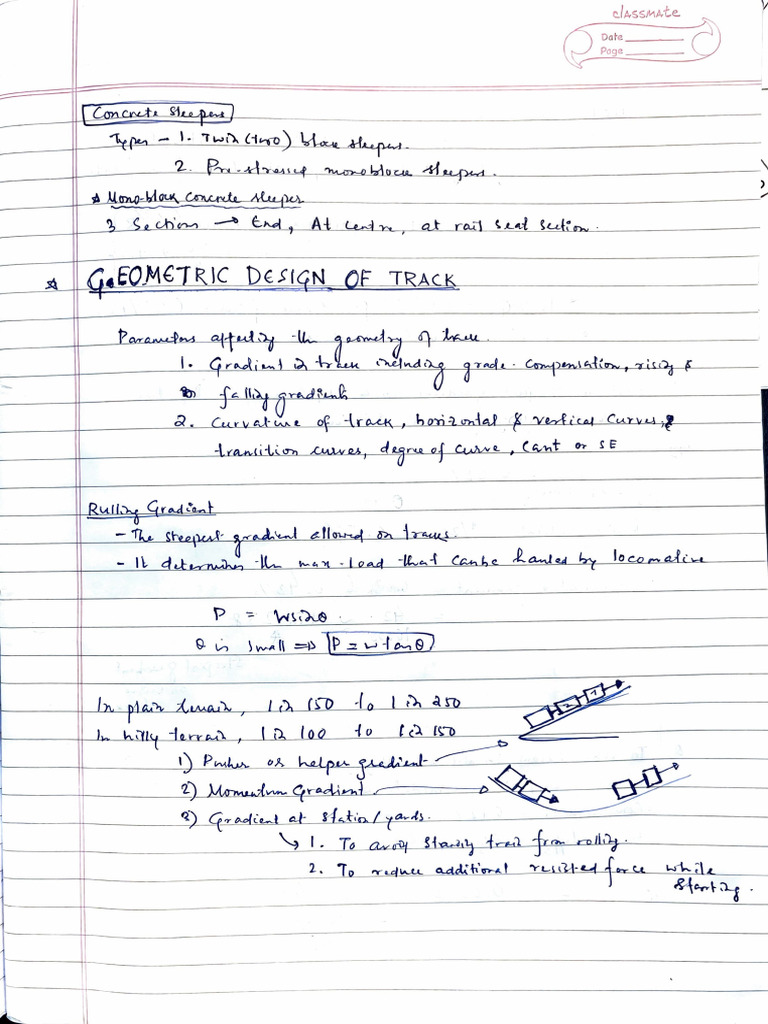 classmate
Date
Page
Concrete Sleepers
Types - 1. Twin (two) block sleepers.
2. Pre-stressed monoblock sleepers.
* Mono-block concrete sleeper
3 Sections → End, At centre, at rail seat section.
* GEOMETRIC DESIGN OF TRACK
Parameters affecting the geometry of track.
1. Gradient in track including grade compensation, rising &
falling gradients
2. Curvature of track, horizontal & vertical curves,
transition curves, degree of curve, Cant or SE
Rulling Gradient
- The steepest gradient allowed on tracks.
- It determines the max load that can be hauled by locomotive
P = W sinθ.
θ is small ⇒ P = W tanθ
In plain terrain, 1 in 150 to 1 in 250
In hilly terrain, 1 in 100 to 1 in 150
1) Pusher or helper gradient
2) Momentum Gradient
3) Gradient at station/yards.
↳ 1. To avoid standing train from rolling.
2. To reduce additional resisted force while
starting.